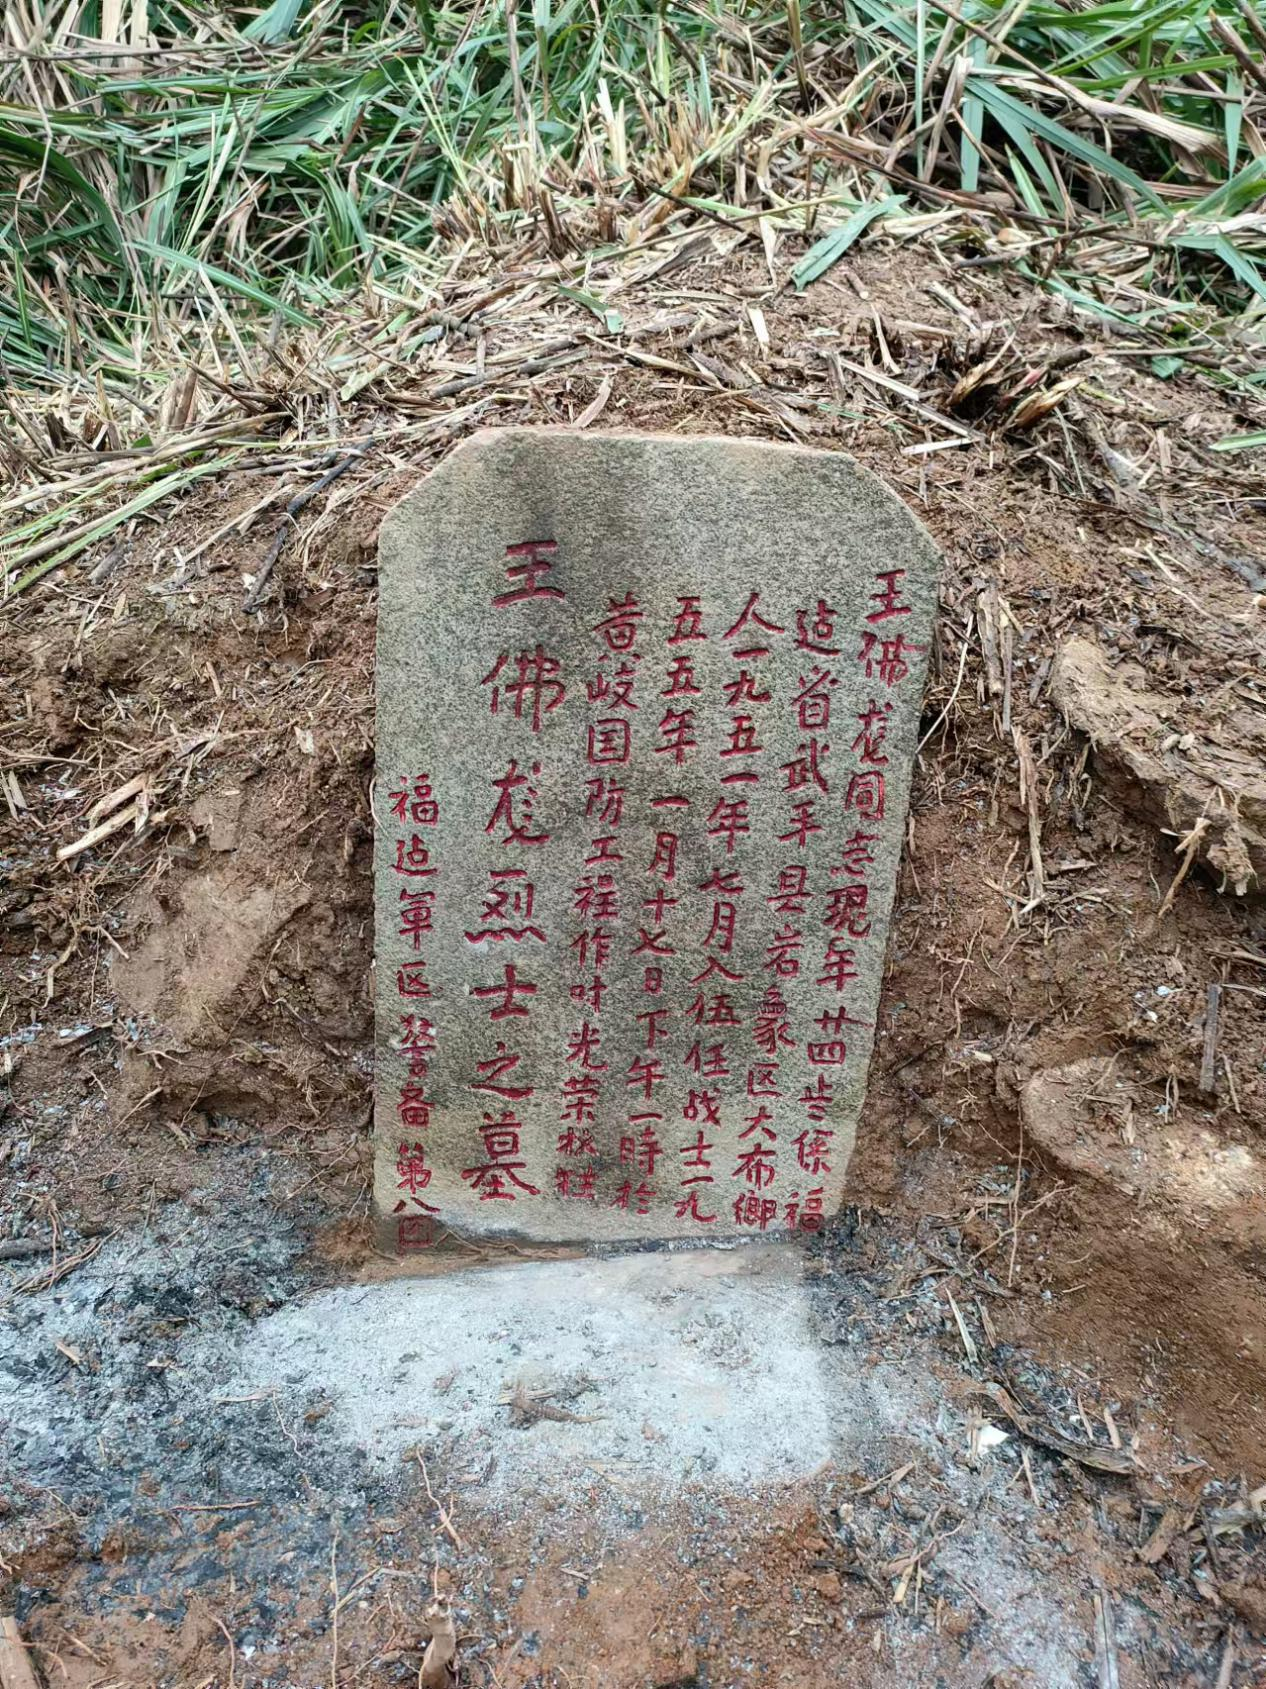 王佛尨同志现年廿四岁係福
建省武平县岩彖区大布鄉
人一九五一年七月入伍任战士一九
五五年一月十七日下午一時於
黄岐国防工程作时光荣牺牲
王佛尨烈士之墓
福建军区警备第八团